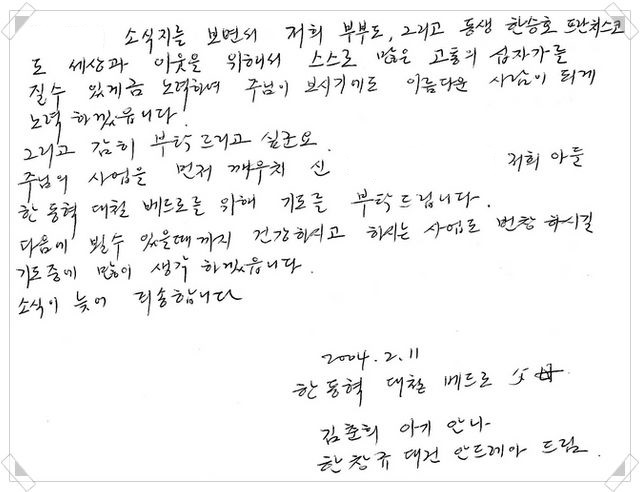 소식지를 보면서 저희 부부도, 그리고 동생 한승호 프란치스코
도 세상과 이웃을 위해서 스스로 많은 고통의 십자가를
질수 있게끔 노력하며 주님이 보시기에도 아름다운 사람이 되게
노력 하겠읍니다.
그리고 감히 부탁드리고 싶군요.
주님의 사업을 먼저 깨우치신 저희 아들
한동혁 대철 베드로를 위해 기도를 부탁드립니다.
다음에 뵐수 있을때까지 건강하시고 하시는 사업도 번창 하시길
기도중에 많이 생각 하겠읍니다.
소식이 늦어 죄송합니다
2004.2.11
한동혁 대철 베드로 父母
김준희 아기 안나
한창규 대건 안드레아 드림.